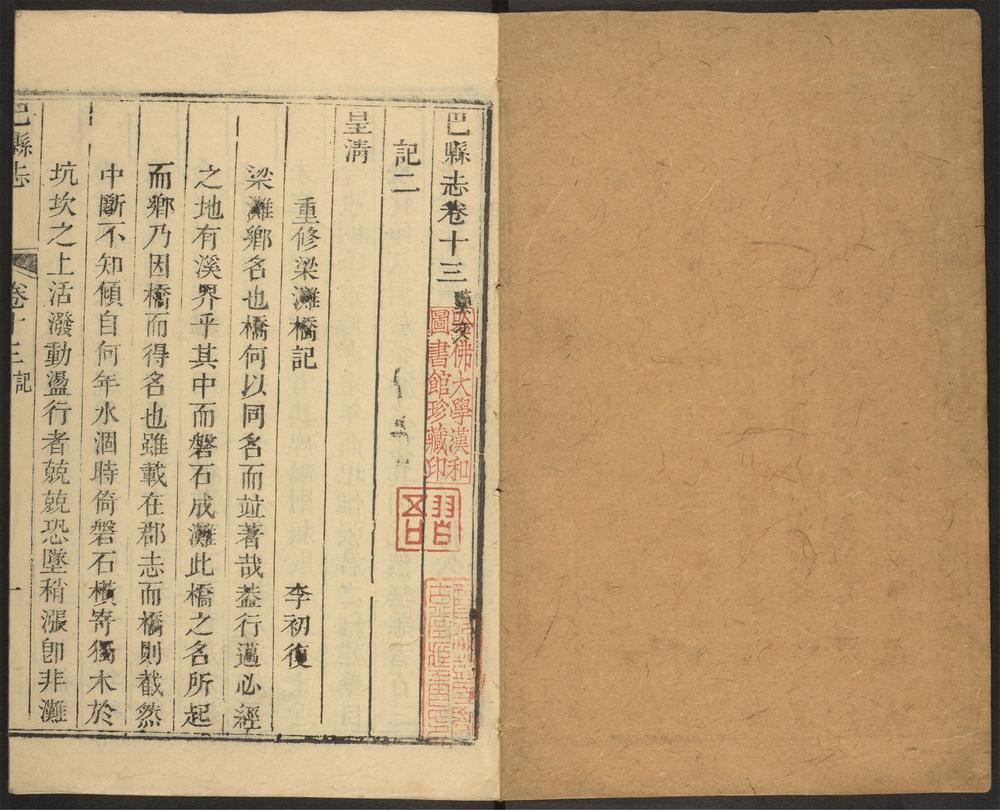 巴縣志卷十三 藝文
記二
皇清
重修梁灘橋記
李初復
梁灘鄉名也橋何以同名而竝著哉葢行邁必經
之地有溪界乎其中而磐石成灘此橋之名所起
而鄉乃因橋而得名也雖載在郡志而橋則截然
中斷不知傾自何年水涸時倚磐石橫寄獨木於
坑坎之上活潑動盪行者兢兢恐墜稍漲卽非灘
巴縣志
卷十三 記
一
哈佛大學漢和
圖書館珍藏印